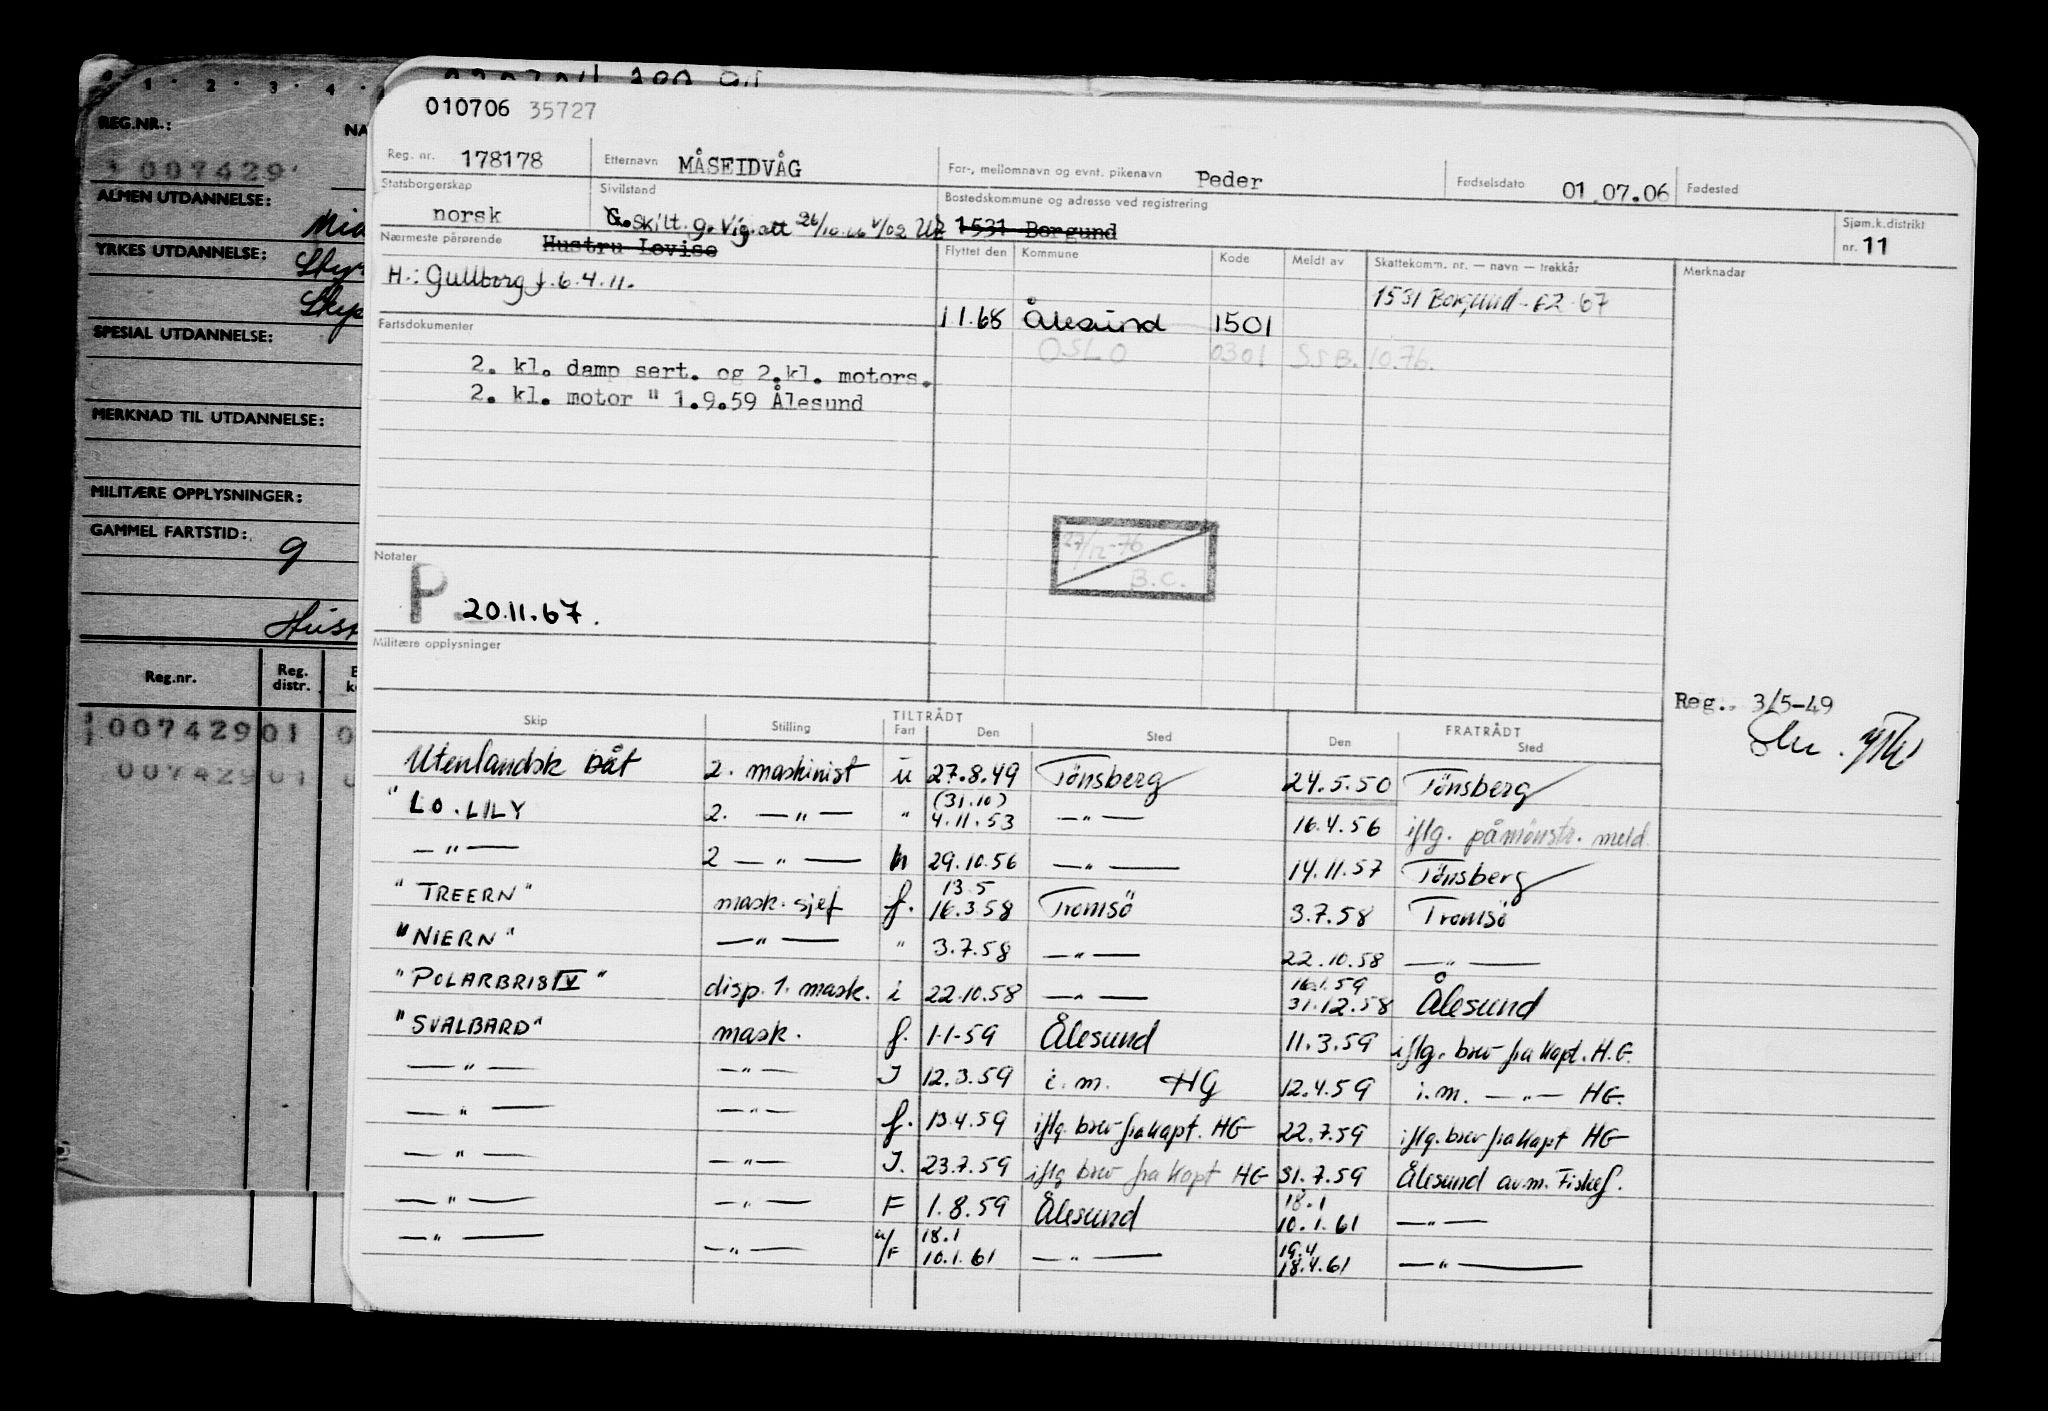 010706 35727
Reg. nr. 178178 Etternavn MÅSEIDVÅG For-, mellomnavn og evnt. pikenavn Peder Fødselsdato 01.07.06 Fødested
Statsborgerskap norsk Sivilstand G. skilt. g. Vig.att 26/10.66 Bostedskommune og adresse ved registrering 1531 Borgund Sjøm.k.distrikt nr. 11
Nærmeste pårørende Hustru Lovise
H.: Gullborg f. 6.4.11.
Flyttet den Kommune Kode Meldt av Skattekomm. nr. — navn — trekkår Merknadar
1531 Borgund - E2 - 67
1 1.68 Ålesund 1501
OSLO 0301 SSB. 10.76.
Fartsdokumenter
2. kl. damp sert. og 2.kl. motors.
2. kl. motor " 1.9.59 Ålesund
27/12-76
B.C.
Notater
P. 20.11.67.
Militære opplysninger
Reg.. 3/5-49
Skip Stilling TILTRÅDT Fart Den Sted FRATRÅDT Den Sted
Utenlandsk båt 2. maskinist u 27.8.49 Tönsberg 24.5.50 Tönsberg
"LO. LILY 2. —"— " (31.10) 4.11.53 —"— 16.4.56 iflg. påmönstr. meld.
—"— 2 —"— 29.10.56 —"— 14.11.57 Tönsberg
"TREERN" mask. sjef f. 13.5 16.3.58 Tromsö 3.7.58 Tromsö
"NIERN" —"— " 3.7.58 —"— 22.10.58 —"—
"POLARBRIS IV" disp. 1. mask. i 22.10.58 —"— 16.1.59 31.12.58 Ålesund
"SVALBARD" mask. f. 1-1-59 Ålesund 11.3.59 iflg. brev fra kapt. H.G.
—"— —"— I 12.3.59 i.m. HG 12.4.59 i.m. —"— HG.
—"— —"— f. 13.4.59 iflg. brev fra kapt. HG 22.7.59 iflg. brev fra kapt HG
—"— —"— I. 23.7.59 iflg brev fra kapt HG 31.7.59 Ålesund av.m. Fiskef.
—"— —"— F 1.8.59 Ålesund 18.1 10.1.61 —"—
—"— —"— u/F 18.1 10.1.61 —"— 19.4 18.4.61 —"—
1 2 3 4
REG.NR.:
007429
ALMEN UTDANNELSE:
YRKES UTDANNELSE:
SPESIAL UTDANNELSE:
MERKNAD TIL UTDANNELSE:
MILITÆRE OPPLYSNINGER:
GAMMEL FARTSTID:
9
Reg.nr. Reg. distr.
007429 01 0
007429 01